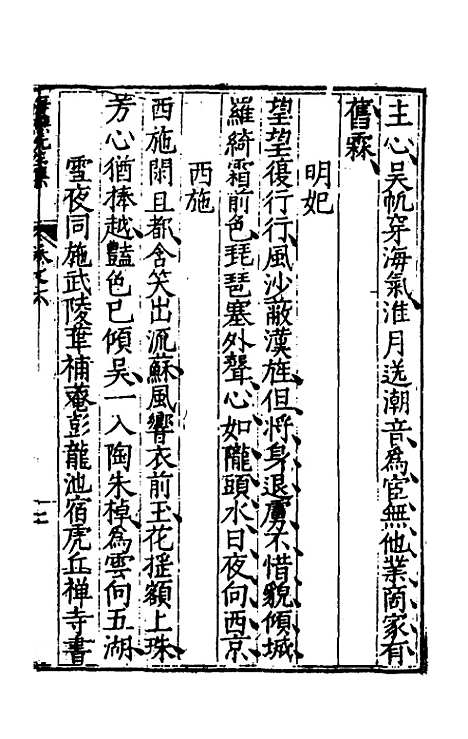 主心吳帆穿海氣淮月送潮音爲宦無他業商家有
舊霖
明妃
望望復行行風沙蔽漢旌但將身退虜不惜貌傾城
羅綺霜前色琵琶塞外聲心如隴頭水日夜向西京
西施
西施閑且都含笑出流蘇風響衣前玉花搖額上珠
芳心猶捧越豔色已傾吳一入陶朱棹爲雲向五湖
雪夜同施武陵華補菴彭龍池宿虎丘禅寺書